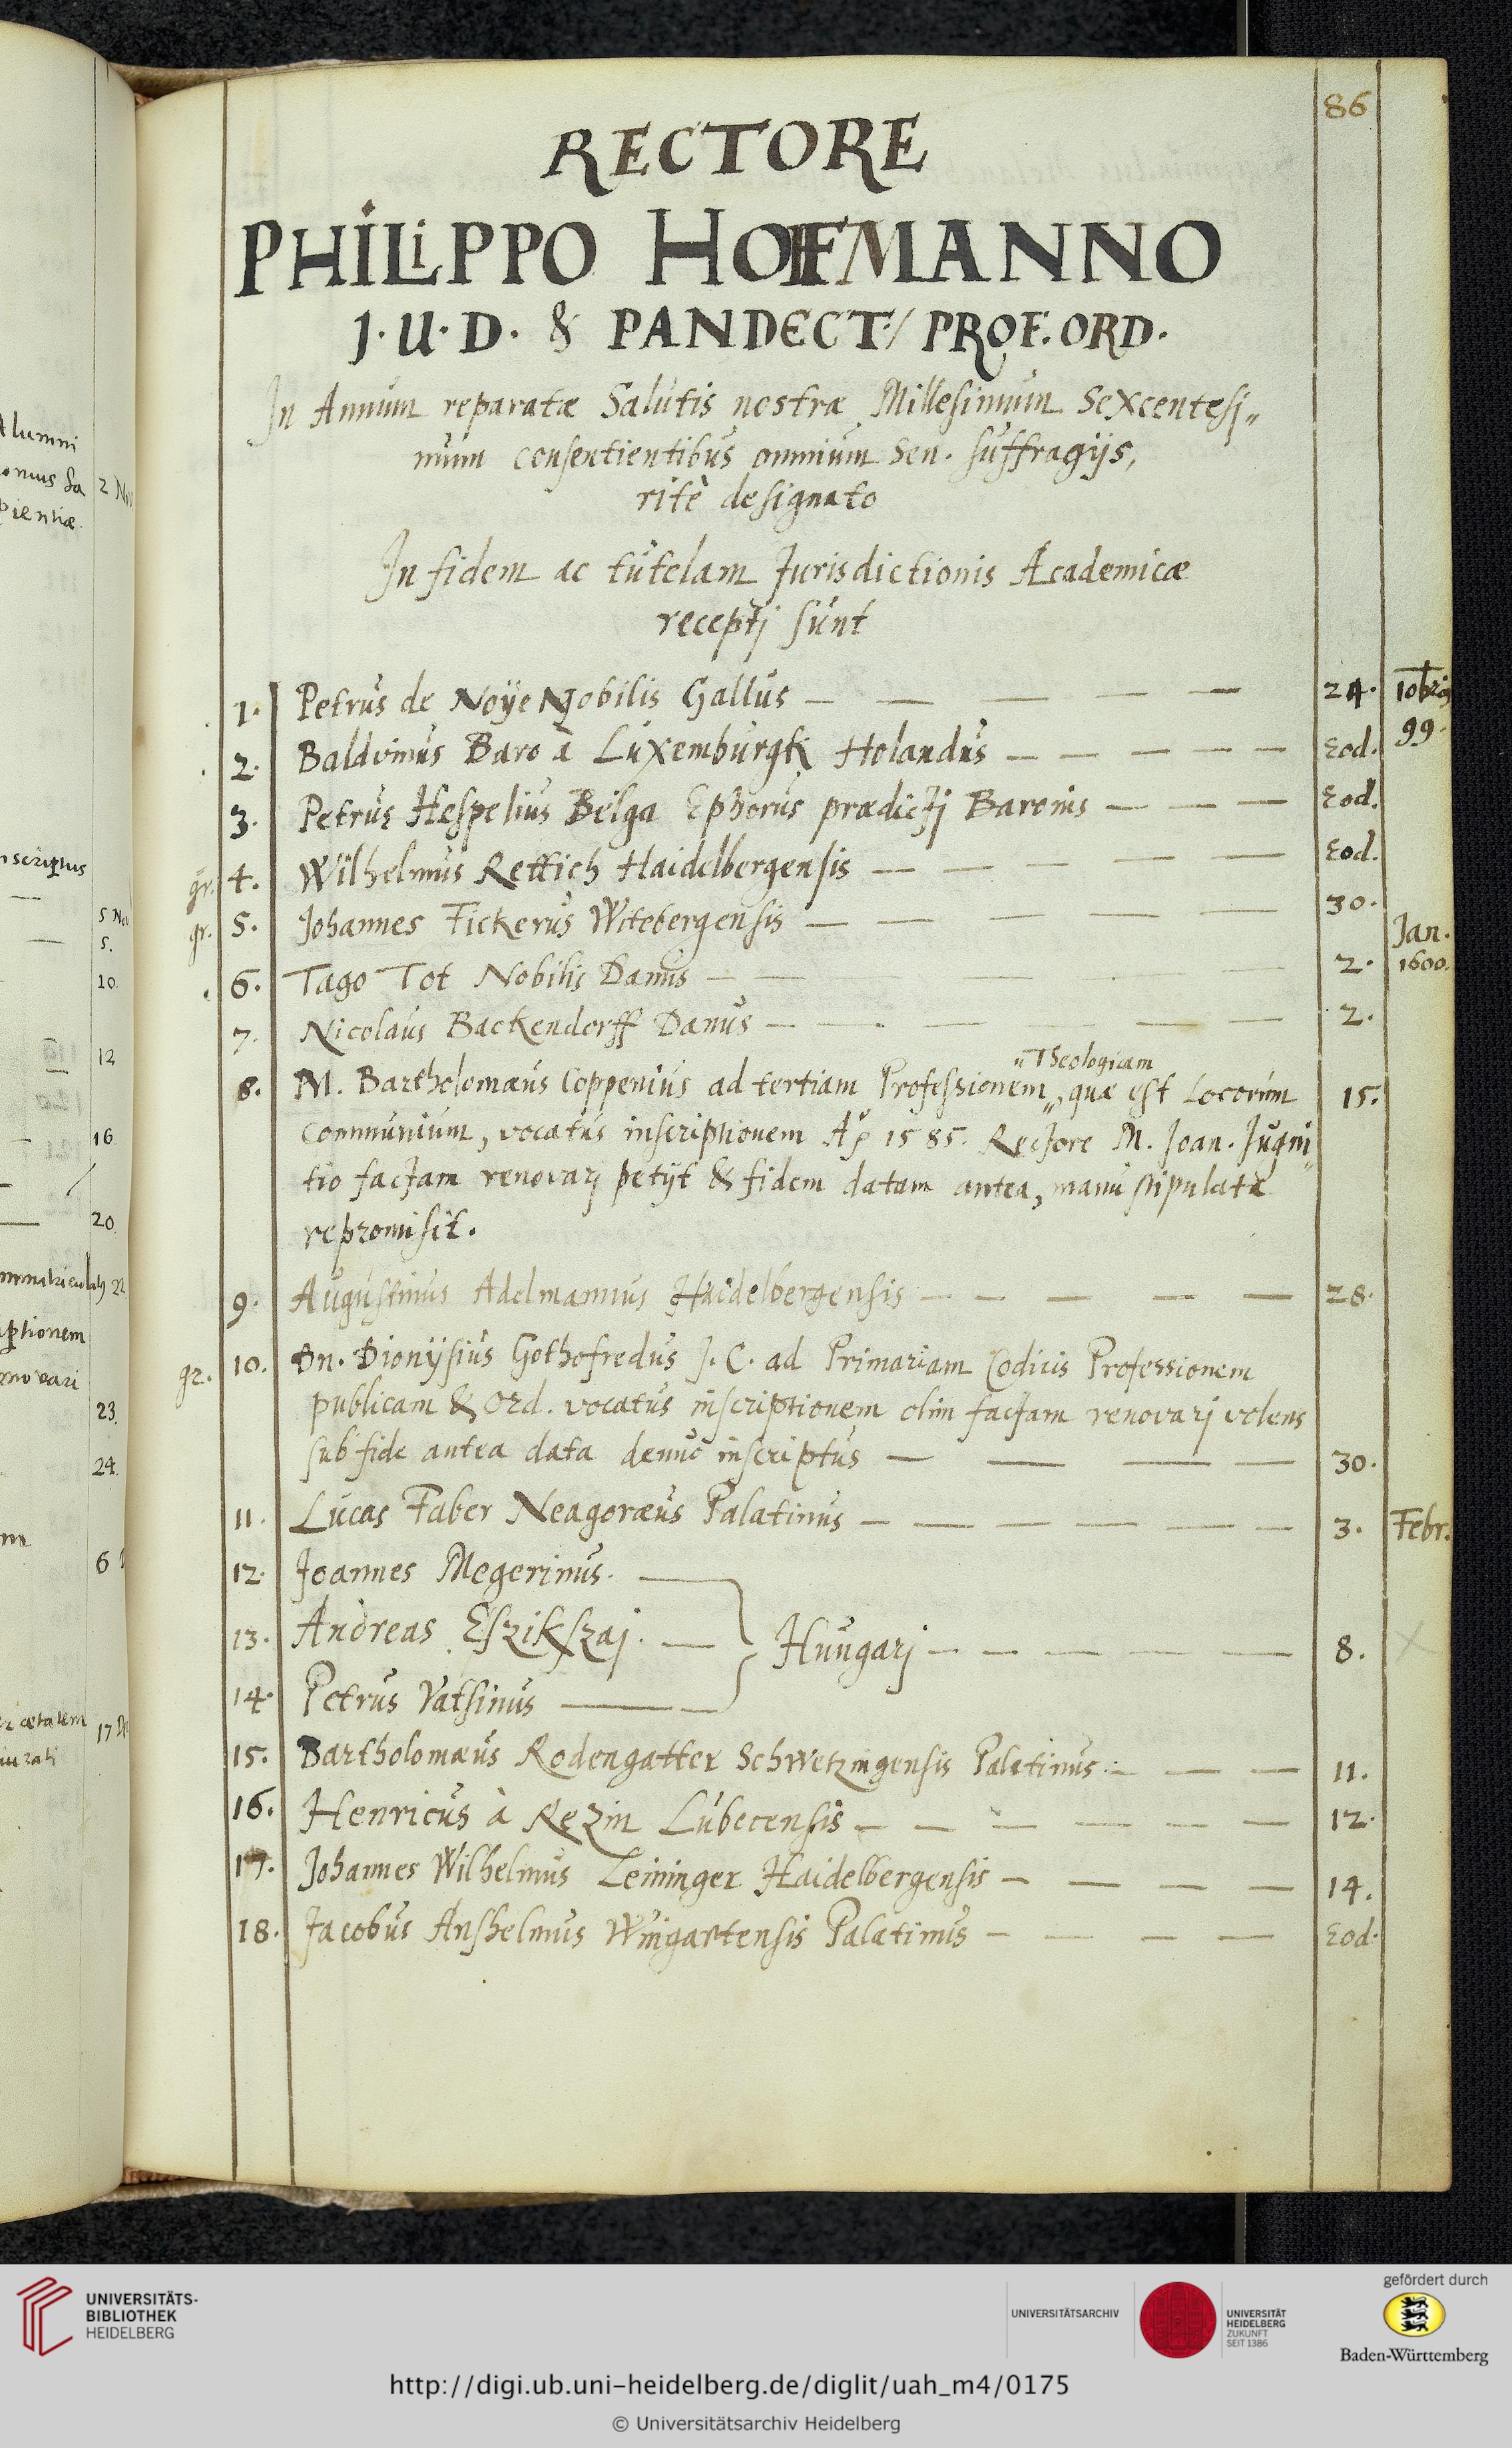 86
RECTORE
PHILIPPO HOFFMANNO
J. U. D. & PANDECT: PROF. ORD.
In Annum reparatæ Salutis nostræ Millesimum Sexcentesi„
mum consentientibus omnium Sen. suffragijs,
ritè designato
In fidem ac tutelam Jurisdictionis Academicæ
receptj sunt
1. Petrus de Noÿe Nobilis Gallus 24. 10bris 99.
2. Baldvinus Baro à Luxemburgk Holandus Eod.
3. Petrus Hespelius Belga Ephorus prædictj Baronis Eod.
gr. 4. Wilhelmus Rettich Haidelbergensis Eod.
gr. 5. Johannes Fickerus Witebergensis 30.
6. Tago Tot Nobilis Danus 2. Jan. 1600.
7. Nicolaus Backendorff Danus 2.
„Theologicam
8. M. Bartholomæus Coppenius ad tertiam Professionem„, quæ est Locorum 15.
Communium, vocatus inscriptionem Aº 1585. Rectore M. Joan. Jugni„
tio factam renovarj petijt & fidem datam antea, manu stipulata
repromisit.
9. Augustinus Adelmannus Haidelbergensis 28.
gr. 10. Dn. Dionÿsius Gothofredus J. C. ad Primariam Codicis Professionem
publicam & Ord. vocatus inscriptionem olim factam renovarj volens
sub fide antea data denuo inscriptus 30.
11. Lucas Faber Neagoræus Palatinus 3. Febr.
12. Joannes Mogerinus.
13. Andreas Eszikszaj. Hungarj 8.
14. Petrus Vatsinus
15. Bartholomæus Rodengatter Schwetzingensis Palatinus. 11.
16. Henricus à Rezin Lubecensis 12.
17. Johannes Wilhelmus Leininger Haidelbergensis 14.
18. Jacobus Anshelmus Wingartensis Palatinus Eod.
Alumni
2
pientiæ.
5
5.
10.
12
16.
20.
22
23.
24.
6
17
UNIVERSITÄTS-
BIBLIOTHEK
HEIDELBERG
UNIVERSITÄTSARCHIV
UNIVERSITÄT
HEIDELBERG
ZUKUNFT
SEIT 1386
gefördert durch
Baden-Württemberg
http://digi.ub.uni-heidelberg.de/diglit/uah_m4/0175
© Universitätsarchiv Heidelberg